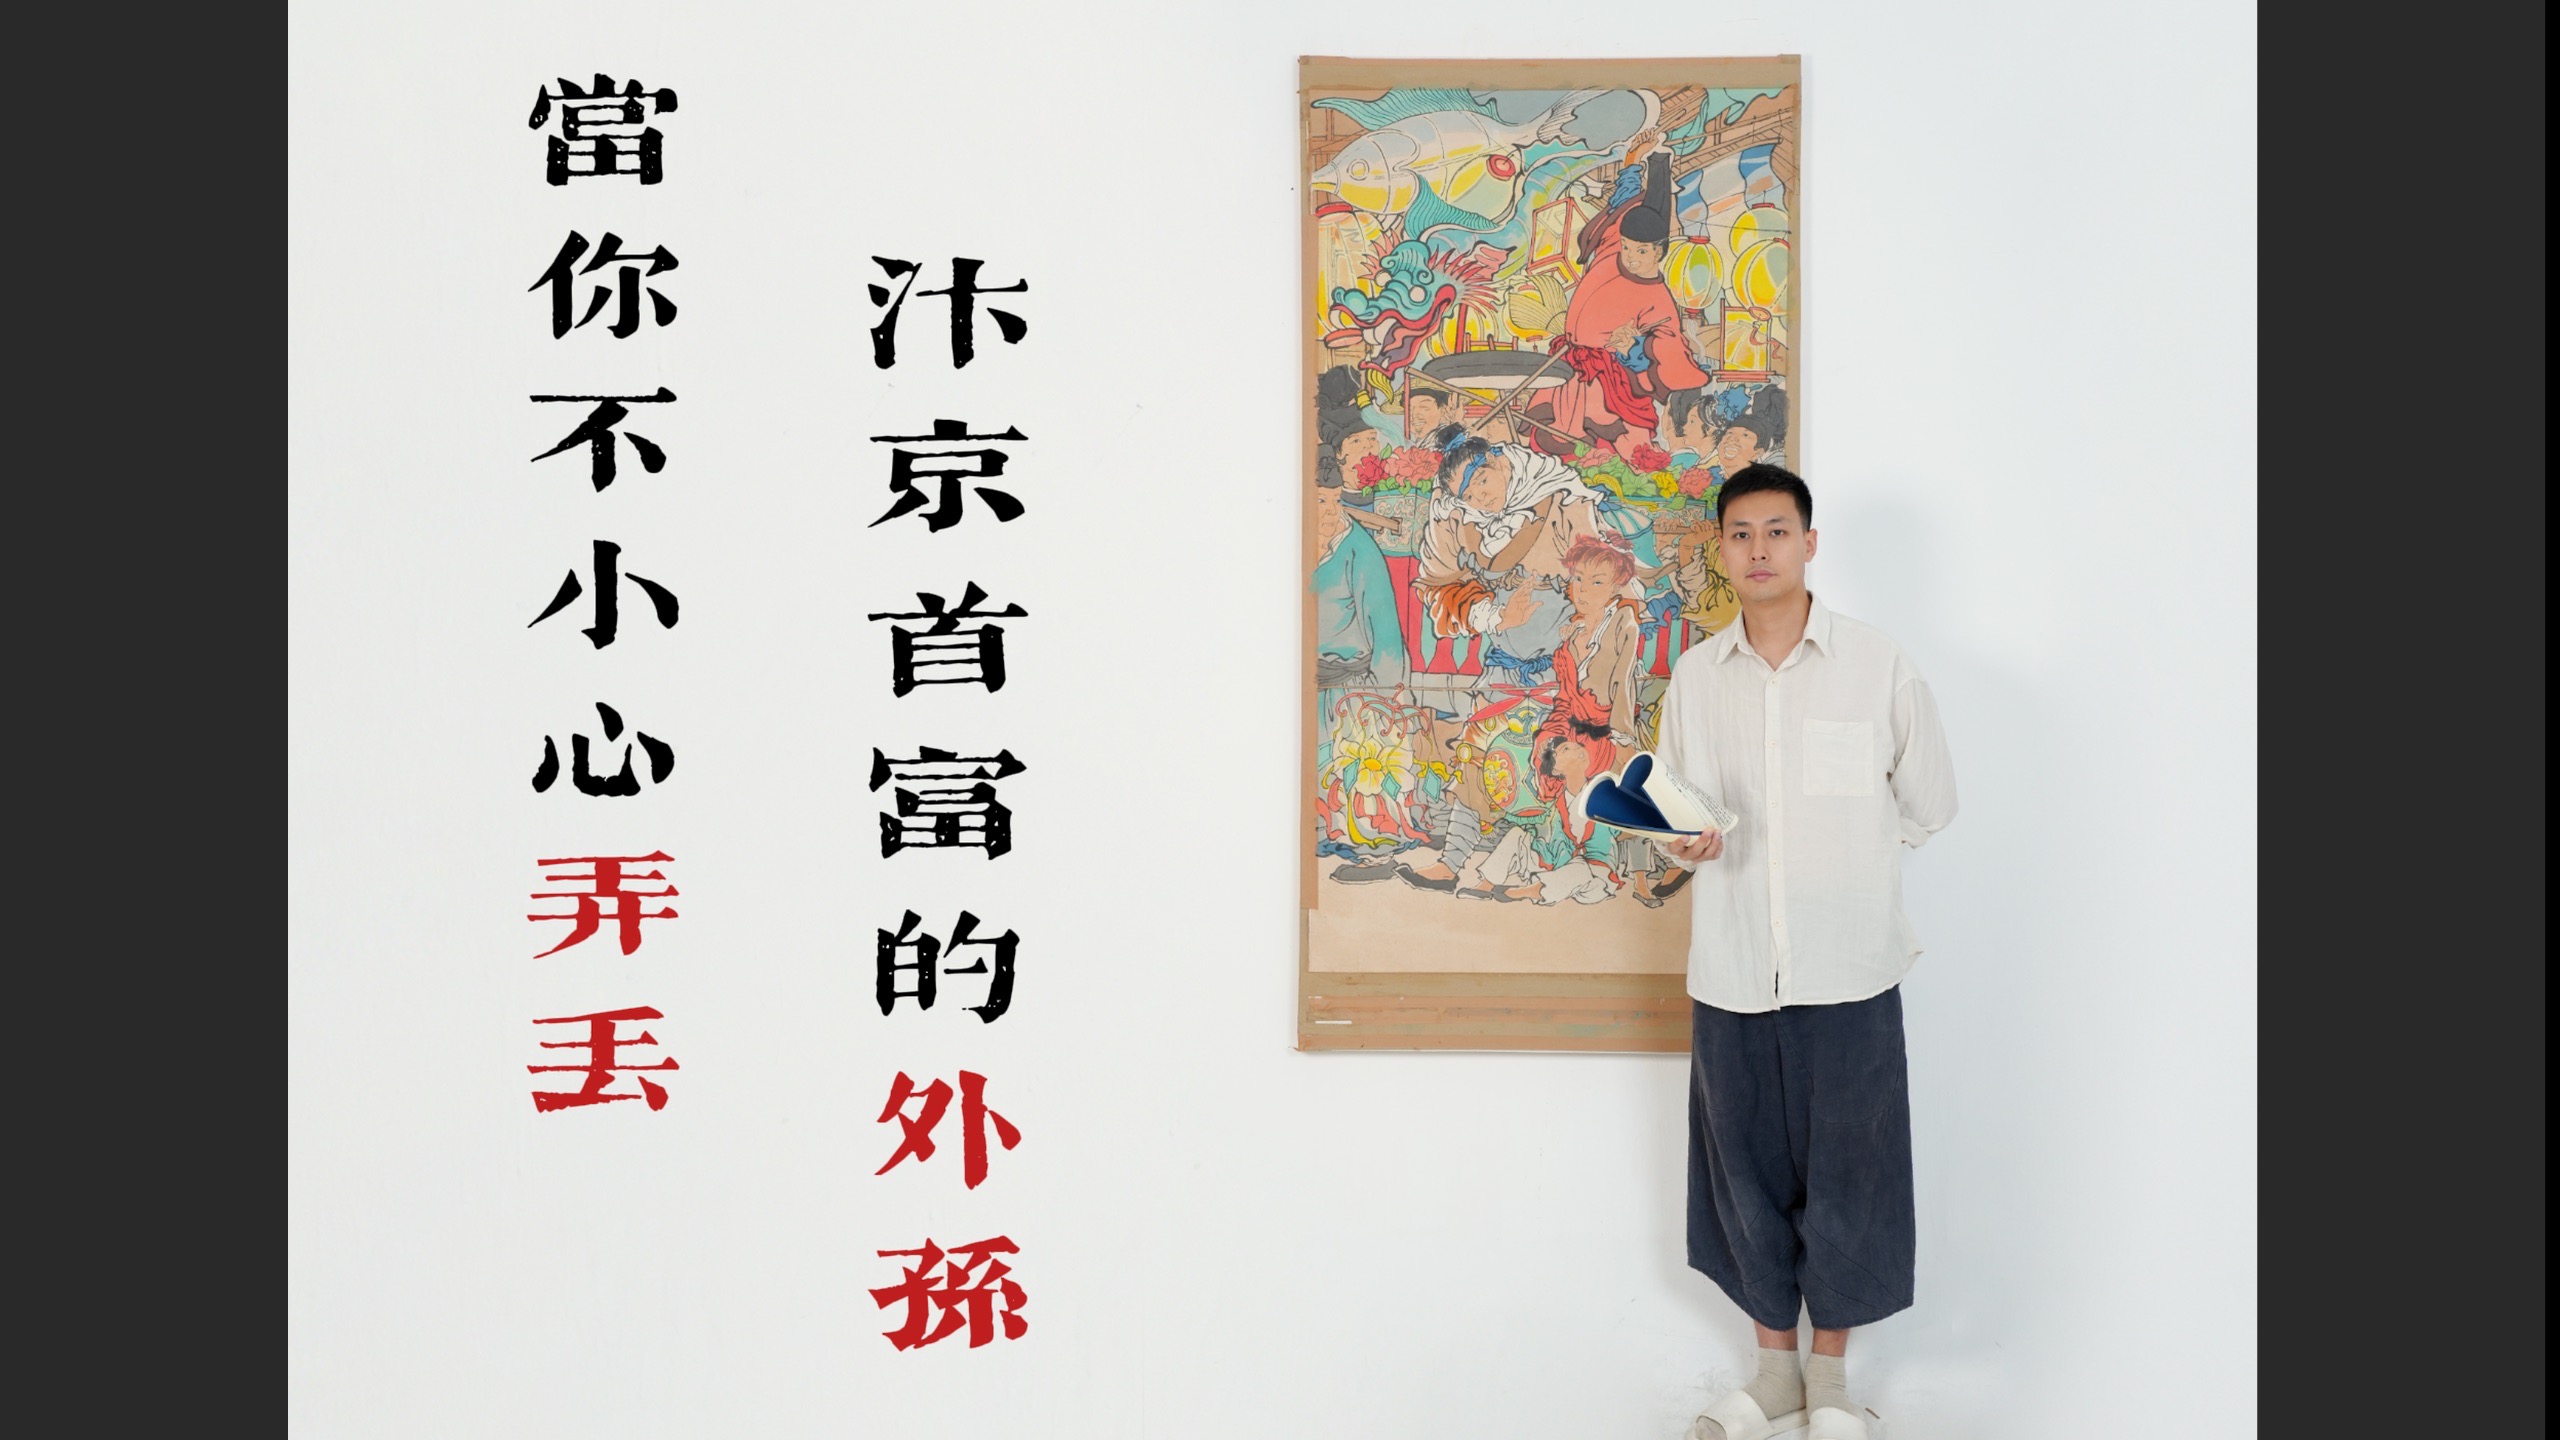 當你不小心弄丢
汴京首富的外孫